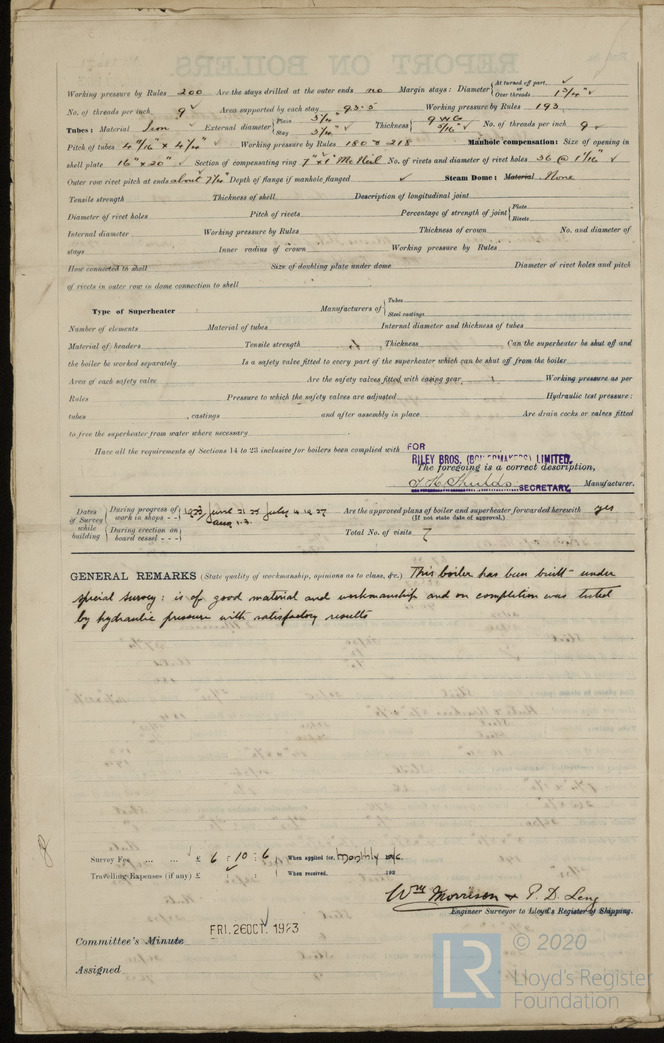 Working pressure by Rules 200 Are the stays drilled at the outer ends no Margin stays: Diameter { At turned off part, or Over threads 1 3/4"
No. of threads per inch 9 Area supported by each stay 93.5 Working pressure by Rules 193
Tubes: Material Iron External diameter { Plain 3 1/4" Stay 3 1/4" Thickness { 9 WG 5/16" No. of threads per inch 9
Pitch of tubes 4 9/16" x 4 1/4" Working pressure by Rules 180 & 218 Manhole compensation: Size of opening in
shell plate 16" x 20" Section of compensating ring 7" x 1" McNeil No. of rivets and diameter of rivet holes 36 @ 1 1/16"
Outer row rivet pitch at ends about 7 1/4" Depth of flange if manhole flanged Steam Dome: Material None
Tensile strength Thickness of shell Description of longitudinal joint
Diameter of rivet holes Pitch of rivets Percentage of strength of joint { Plate Rivets
Internal diameter Working pressure by Rules Thickness of crown No. and diameter of
stays Inner radius of crown Working pressure by Rules
How connected to shell Size of doubling plate under dome Diameter of rivet holes and pitch
of rivets in outer row in dome connection to shell
Type of Superheater Manufacturers of { Tubes Steel castings
Number of elements Material of tubes Internal diameter and thickness of tubes
Material of headers Tensile strength Thickness Can the superheater be shut off and
the boiler be worked separately Is a safety valve fitted to every part of the superheater which can be shut off from the boiler
Area of each safety valve Are the safety valves fitted with easing gear Working pressure as per
Rules Pressure to which the safety valves are adjusted Hydraulic test pressure:
tubes , castings and after assembly in place Are drain cocks or valves fitted
to free the superheater from water where necessary
Have all the requirements of Sections 14 to 23 inclusive for boilers been complied with FOR
RILEY BROS. (BOILERMAKERS) LIMITED.
The foregoing is a correct description,
SECRETARY. Manufacturer.
Dates of Survey while building { During progress of work in shops - - 1923 June 21 25 July 4 12 27 Aug 1.3. Are the approved plans of boiler and superheater forwarded herewith yes
(If not state date of approval.)
During erection on board vessel - - - Total No. of visits 7
GENERAL REMARKS (State quality of workmanship, opinions as to class, &c.) This boiler has been built under
special survey: is of good material and workmanship and on completion was tested
by hydraulic pressure with satisfactory results
Survey Fee ... ... £ 6 : 10 : 6 When applied for, monthly 192
Travelling Expenses (if any) £ : : When received, 192
Wm Morrison & P. D. Leng
Engineer Surveyor to Lloyd's Register of Shipping.
Committee's Minute FRI. 26 OCT. 1923
Assigned
LR © 2020
Lloyd's Register
Foundation